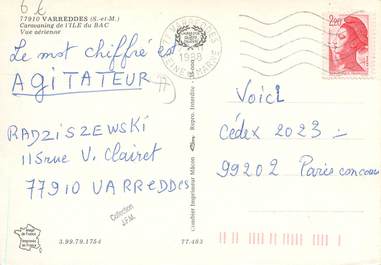 6 €
77910 VARREDDES (S.-et-M.)
Caravaning de l'ILE du BAC
Vue aérienne
Le mot chiffré est
AGITATEUR
RADZISZEWSKI
115 rue V. Clairet
77910 VARREDDES
Collection
J.F.M.
3.99.79.1754
Combier Imprimeur Mâcon
Repro. Interdite
77.483
1988
SEINE MARNE
2,20
Voici
Cédex 2023 -
99202 Paris concours